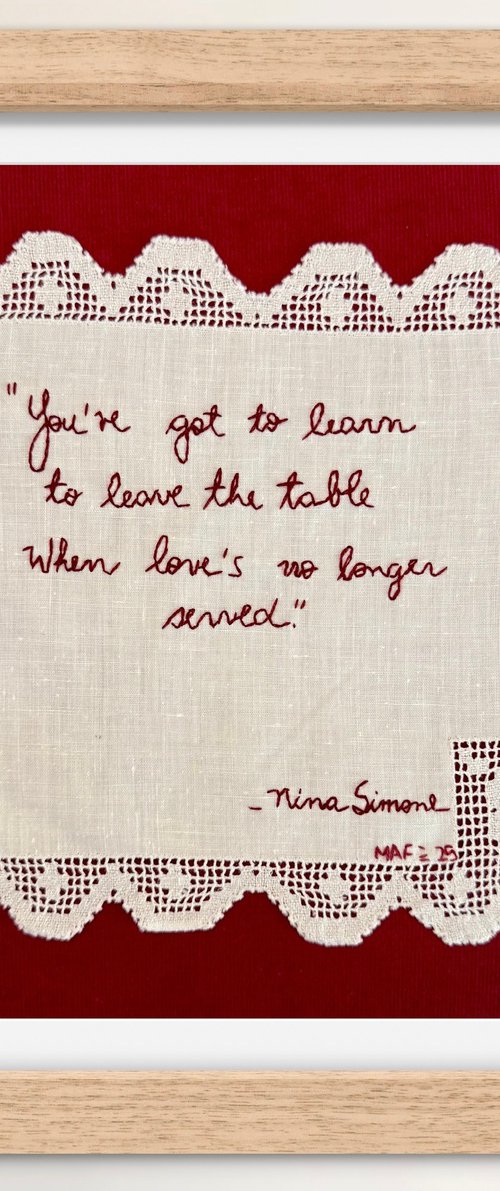 "You've got to learn
to leave the table
When love's no longer
served."
- Nina Simone
MAF = 25